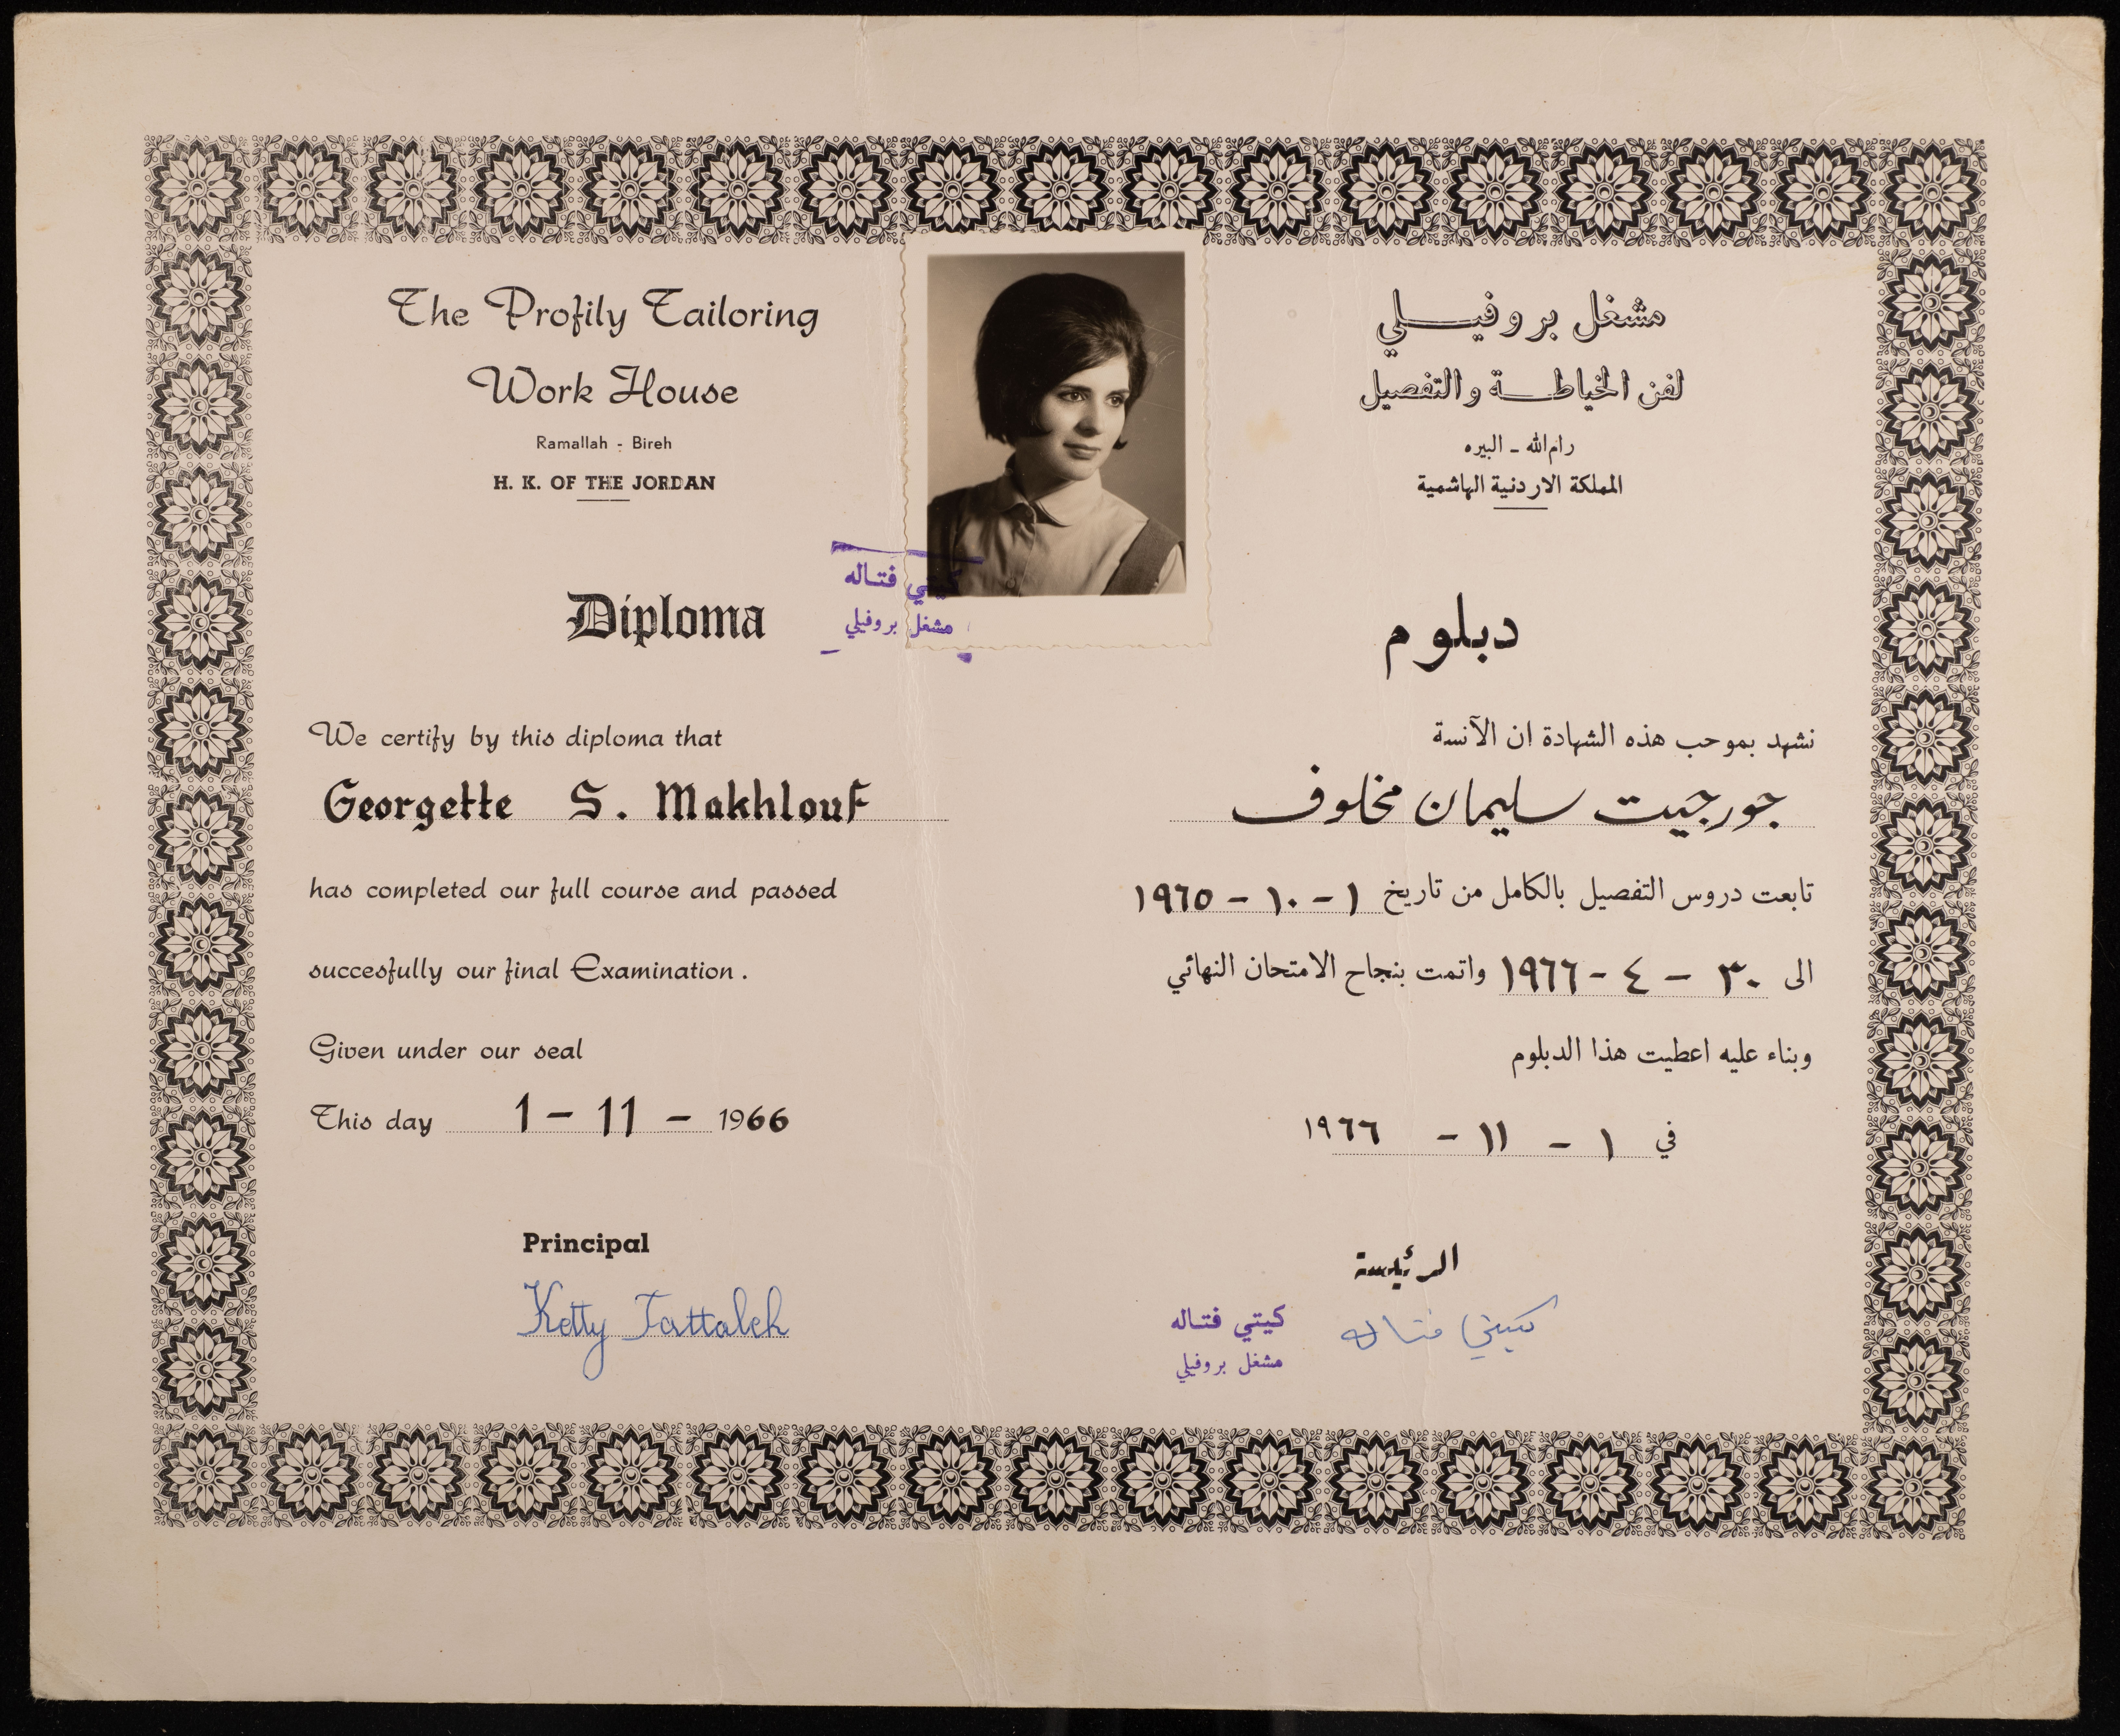 The Profily Tailoring
Work House
Ramallah - Bireh
H. K. OF THE JORDAN
Diploma
We certify by this diploma that
Georgette S. Makhlouf
has completed our full course and passed
succesfully our final Examination.
Given under our seal
This day 1 - 11 - 1966
Principal
Ketty Fattaleh
كيتي فتاله
مشغل بروفيلي
مشغل بروفيلي
لفن الخياطة والتفصيل
رام الله - البيره
المملكة الاردنية الهاشمية
دبلوم
نشهد بموحب هذه الشهادة ان الآنسة
جورجيت سليمان مخلوف
تابعت دروس التفصيل بالكامل من تاريخ ١ - ١٠ - ١٩٦٥
الى ٣٠ - ٤ - ١٩٦٦ واتمت بنجاح الامتحان النهائي
وبناء عليه اعطيت هذا الدبلوم
في ١ - ١١ - ١٩٦٦
الرئيسة
كيتي فتاله
كيتي فتاله
مشغل بروفيلي